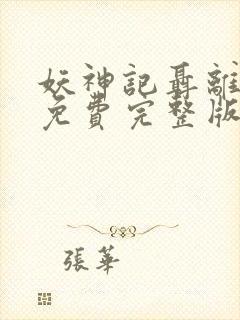 妖神記聶離
免費完整版
張華